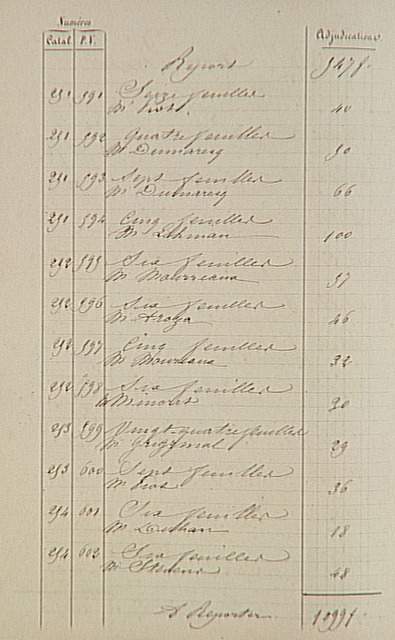 Numéros
Catal. P.V. Adjudications
Report 5478.
251 591 Seize feuilles
Mr 40
251 592 Quatre feuilles
Mr Dumaresq 50
251 593 Sept feuilles
Mr Dumaresq 66
251 594 Cinq feuilles
Mr Lehman 100
252 595 Six feuilles
Mr 57
252 596 Six feuilles
Mr Araza 46
252 597 Cinq feuilles
Mr 32
252 598 Six feuilles
Mr Minoret 20
253 599 Vingt quatre feuilles
Mr 29
253 600 Sept feuilles
Mr 36
254 601 Six feuilles
Mr 18
254 602 Six feuilles
Mr Stevens 48
A Reporter